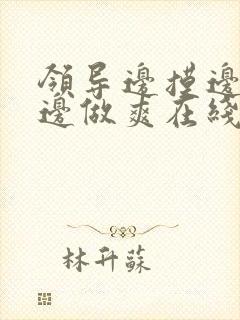 領导邊摸邊
邊做爽在綫
林升蘇